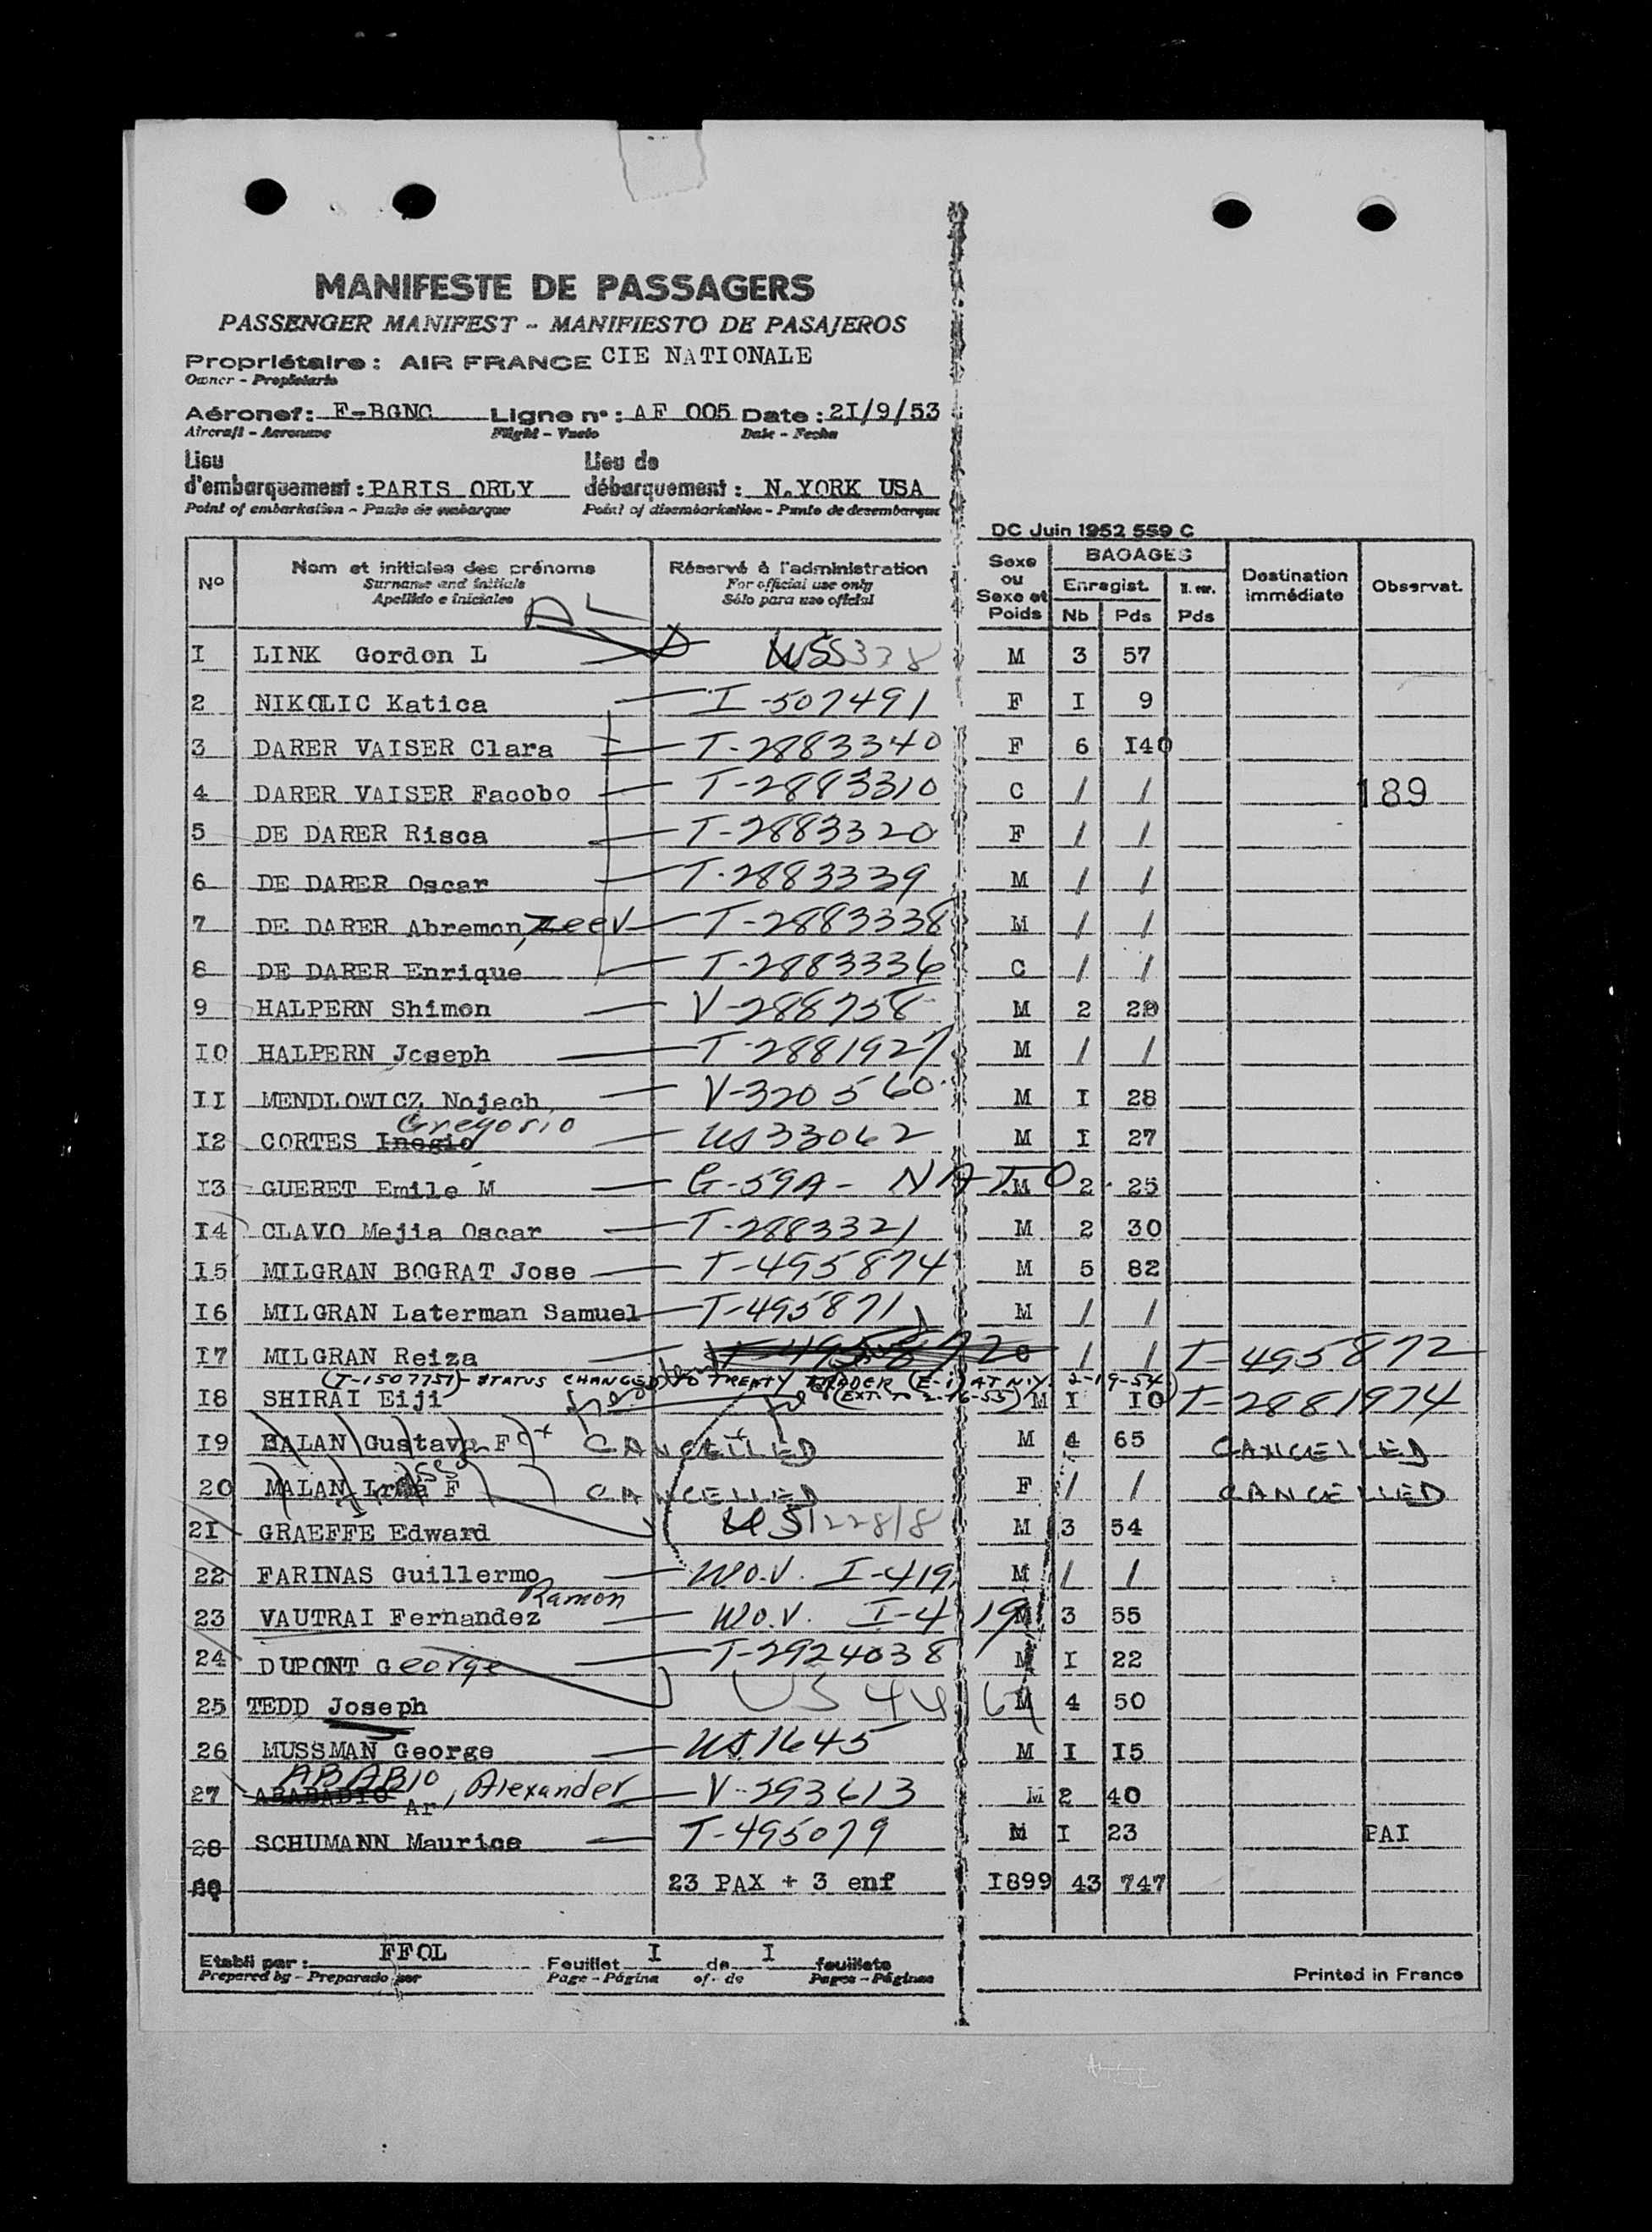 MANIFESTE DE PASSAGERS
PASSENGER MANIFEST - MANIFIESTO DE PASAJEROS
Propriétaire : AIR FRANCE CIE NATIONALE
Owner - Propietario
Aéronef : F-BGNC Ligne n° : AF 005 Date : 2I/9/53
Aircraft - Aeronave Flight - Vuelo Date - Fecha
Lieu d'embarquement : PARIS ORLY Lieu de débarquement : N.YORK USA
Point of embarkation - Punto de embarque Point of disembarkation - Punto de desembarque
DC Juin 1952 559 C
N° Nom et initiales des prénoms Réservé à l'administration Sexe ou Sexe et Poids BAGAGES Destination immédiate Observat.
Surname and initials For official use only Enregist. Pds
Apellido e iniciales Sólo para uso oficial Nb Pds
AL
I LINK Gordon L M 3 57
2 NIKOLIC Katica I-507491 F I 9
3 DARER VAISER Clara T-2883340 F 6 I40
4 DARER VAISER Facobo T-2883310 C / / 189
5 DE DARER Risca T-2883320 F / /
6 DE DARER Oscar T-2883339 M / /
7 DE DARER Abremon, Zeev T-2883338 M / /
8 DE DARER Enrique T-2883336 C / /
9 HALPERN Shimon V-288758 M 2 29
I0 HALPERN Joseph T-2881927 M / /
II MENDLOWICZ Nojech V-320560 M I 28
Gregorio
I2 CORTES Inegio US33062 M I 27
I3 GUERET Emile M G-59A- NATO M 2 25
I4 CLAVO Mejia Oscar T-2883321 M 2 30
I5 MILGRAN BOGRAT Jose T-495874 M 5 82
I6 MILGRAN Laterman Samuel T-495871 M / /
I7 MILGRAN Reiza T-495872 C / / T-495872
(T-1507757)- STATUS CHANGED TO TREATY TRADER (E-1) AT N.Y. 2-19-54.
(EXT. TO 2-16-55)
I8 SHIRAI Eiji M I I0 T-2881974
I9 BALAN Gustave F CANCELLED M 4 65 CANCELLED
20 MALAN F CANCELLED F / / CANCELLED
2I GRAEFFE Edward US122818 M 3 54
22 FARINAS Guillermo WO.V. I-419 M / /
Ramon
23 VAUTRAI Fernandez WO.V. I-419 M 3 55
24 DUPONT George T-2924038 M I 22
25 TEDD Joseph M 4 50
26 MUSSMAN George US1645 M I I5
ABABIO
27 ABABADIO Ar, Alexander V-293613 M 2 40
28 SCHUMANN Maurice T-495079 M I 23 PAI
23 PAX + 3 enf I899 43 747
Etabli par : FFOL Feuillet I de I feuillets
Prepared by - Preparado por Page - Página of - de Pages - Páginas
Printed in France